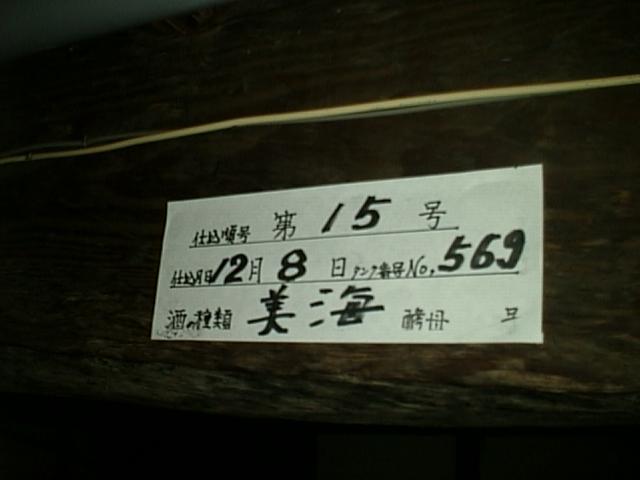 仕込順号 第 15 号
仕込月日 12月 8 日 タンク番号 No. 569
酒の種類 美海 酵母 号